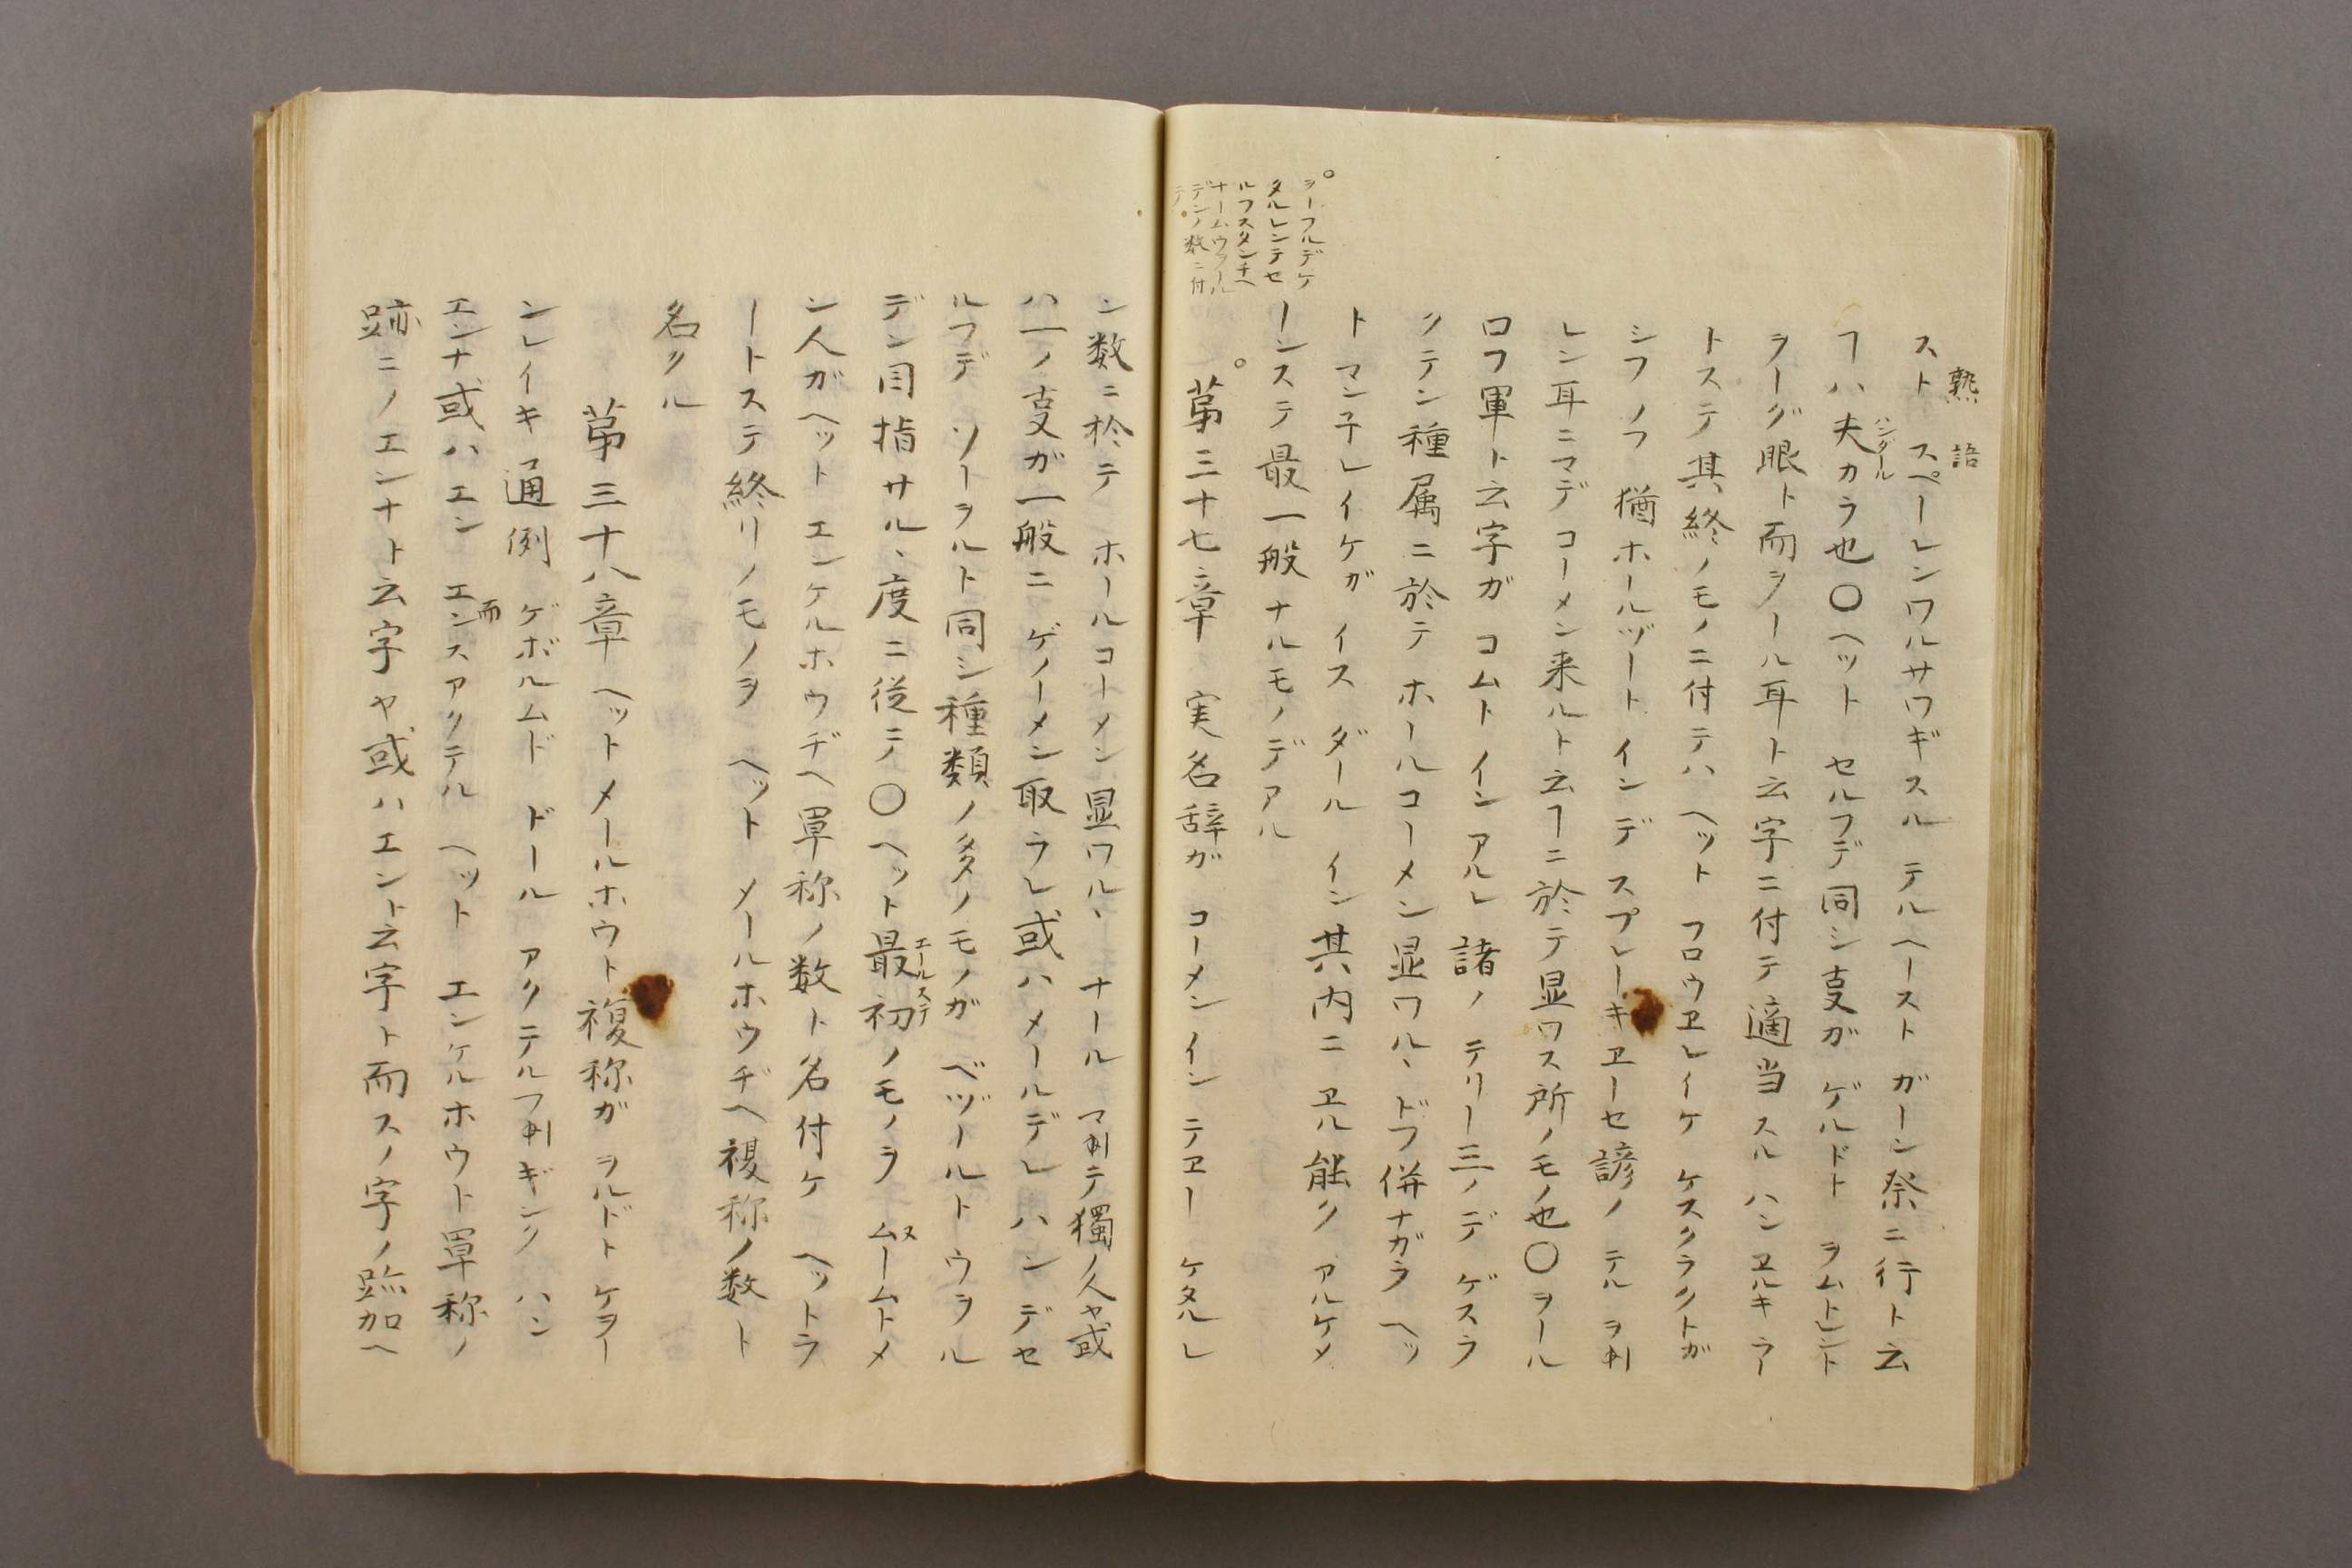 熟語
スト スペーレンワルサワギスル テルヘースト ガーン祭ニ行ト云
ハンダール
フハ夫カラ也〇ヘット セルフデ同シ㕝ガ ゲルドト ヲムトレント
ヲーグ眼ト而ヲール耳ト云字ニ付テ適当スル ハンヱルキ ラー
トステ其終ノモノニ付テハ ヘット フロウヱレイケ ケスクラクトガ
シフ ノフ 猶ホールヅート インデ スプレーキヱーセ諺ノ テル ヲ
レン耳ニマデ コーメン来ルト云フニ於テ显ワス所ノモノ也〇ヲール
ロフ軍ト云字ガ コムト イン アルレ 諸ノ テリー三ノデ ゲスラ
クテン種属ニ於テ ホールコーメン显ワル、ドフ併ナガラ ヘッ
トマン子レイケガ イス ダール イン其内ニ ヱル能ク アルケメ
ーンステ最一般ナルモノデアル
〇ヲーフルデケ
タルレンテセ
ルフスタンチヘ
ナームウヲール
デンノ数ニ付
テ
〇第三十七章 実名辞ガ コーメン イン テヱー ケタルレ
ン数ニ於テ ホールコーメン显ワル、 ナール マ テ獨ノ人ヤ或
ハ一ノ㕝ガ一般ニ ゲノーメン取ラレ或ハ メールデレ ハン デセ
ルフデ ソーヲルト同シ種類ノ多ノモノガ ベヅールト ウヲル
デン目指サル、度ニ従ニノ〇ヘット最初ノモノヲ ムームトメ
エールステ
ヌ
ン人ガヘット エンケルホウヂヘ単称ノ数ト名付ケ ヘットラ
ートステ終リノモノヲ ヘット メールホウヂヘ複称ノ数ト
名クル
第三十八章 ヘットメールホウト複称ガ ヲルドト ケヲー
ンレイキ通例 ゲボルムド ドール アクテルフ ギンク ハン
エンナ或ハエン エンスアクテル ヘット エンケルホウト単称ノ
而
跡ニノエンナト云字ヤ或ハエント云字ト而スノ字ノ跡加ヘ